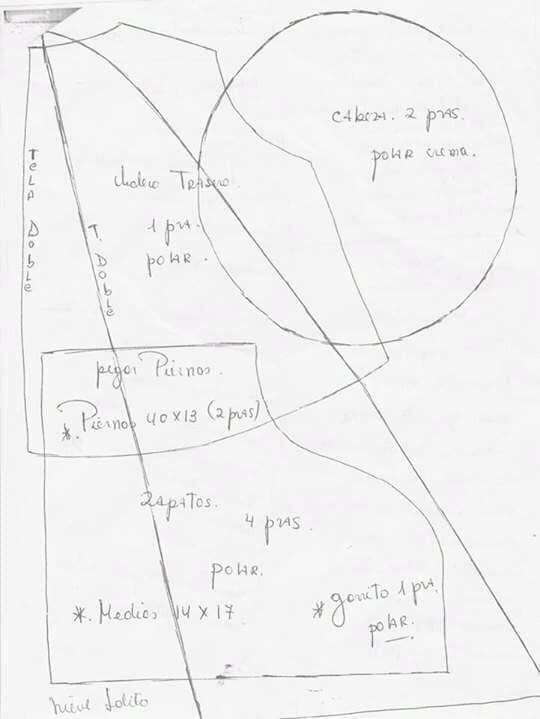 CAbeza. 2 pzas.
polar crema.
TELA DoblE
T. DoblE
chaleco Trasero.
1 pza.
polar.
pegar Piernas.
*. Piernas 40 x 13 (2 pzas)
Zapatos.
4 pzas.
polar.
*. Medias 14 x 17
* gorrito 1 pza.
polar.
Lolito